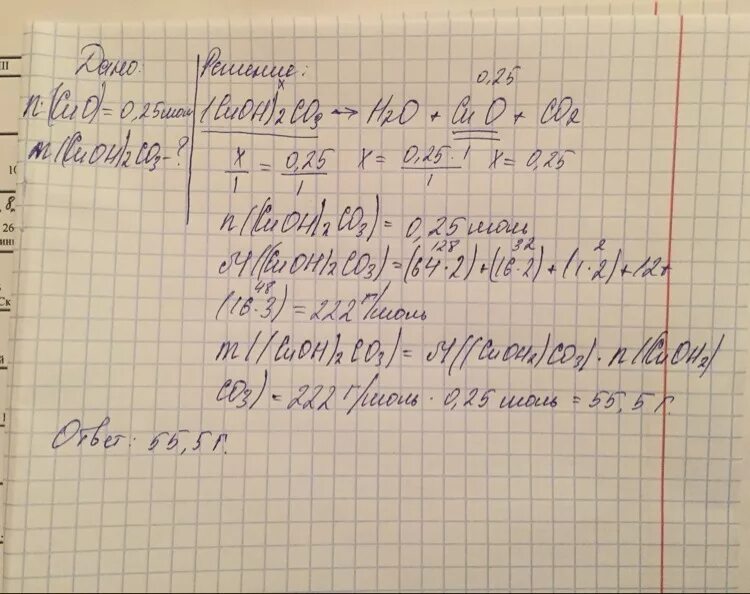 Дано:
n(CuO) = 0,25 моль
m(CuOH)2CO3 - ?
Решение:
x 0,25
(CuOH)2CO3 → H2O + CuO + CO2
x/1 = 0,25/1 x = 0,25·1/1 x = 0,25
n((CuOH)2CO3) = 0,25 моль
128 32 2
M((CuOH)2CO3) = (64·2) + (16·2) + (1·2) + 12 +
48
(16·3) = 222 г/моль
m((CuOH)2CO3) = M((CuOH2)CO3) · n((CuOH2)
CO3) = 222 г/моль · 0,25 моль = 55,5 г.
Ответ: 55,5 г.
III
1
8
26
Ск
1